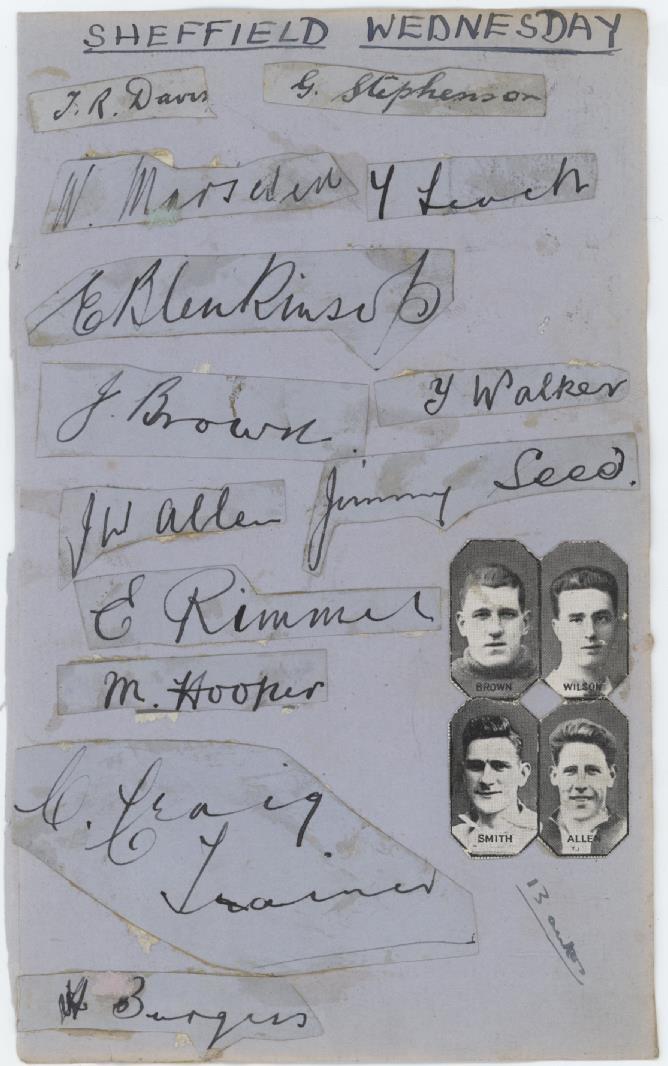 SHEFFIELD WEDNESDAY
T. R. Davis G. Stephenson
W. Marsden T Leach
E Blenkinsop
J. Brown T Walker
JW Allen Jimmy Seed.
E Rimmer
M. Hooper
BROWN WILSON
SMITH ALLEN
C. Craig
Trainer
H Burgess